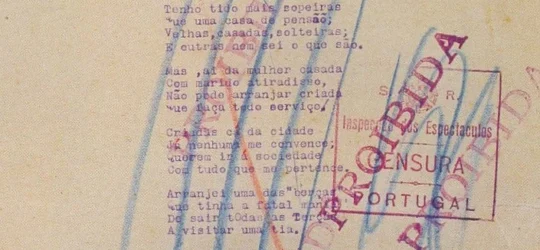 Tenho tido mais sopeiras
que uma casa de pensão;
Velhas,casadas,solteiras;
E outras nem sei o que são.
Mas ,ai da mulher casada
Com marido atiradisso,
Não pode arranjar criada
que faça todo serviço.
Criadas cá da cidade
Já nenhuma me convence;
Querem ir á sociedade
Com tudo que me pertence.
Arranjei uma das
que tinha a fatal
De sair tôdas as
A visitar uma tia.
S. R.
Inspecção dos Espectaculos
CENSURA
PORTUGAL
PROIBIDA
PROIBIDA